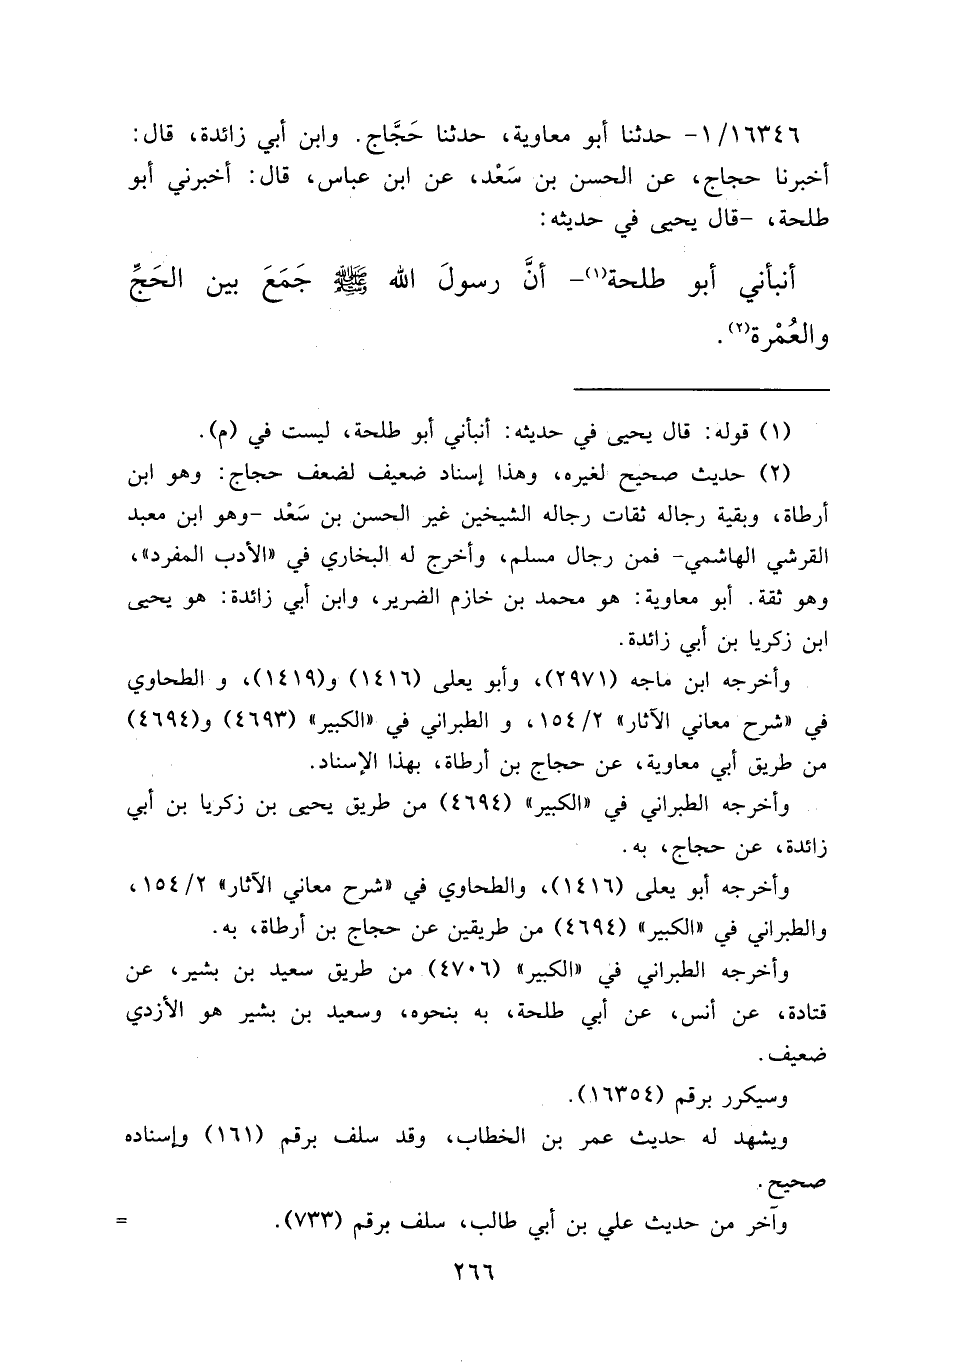 ١٦٣٤٦/١- حدثنا أبو معاوية، حدثنا حَجَّاج. وابن أبي زائدة، قال:
أخبرنا حجاج، عن الحسن بن سَعْد، عن ابن عباس، قال: أخبرني أبو
طلحة، -قال يحيى في حديثه:
أنبأني أبو طلحة(١)- أنَّ رسولَ الله ﷺ جَمَعَ بين الحَجِّ
والعُمْرة(٢).
(١) قوله: قال يحيى في حديثه: أنبأني أبو طلحة، ليست في (م).
(٢) حديث صحيح لغيره، وهذا إسناد ضعيف لضعف حجاج: وهو ابن
أرطاة، وبقية رجاله ثقات رجاله الشيخين غير الحسن بن سَعْد -وهو ابن معبد
القرشي الهاشمي- فمن رجال مسلم، وأخرج له البخاري في «الأدب المفرد»،
وهو ثقة. أبو معاوية: هو محمد بن خازم الضرير، وابن أبي زائدة: هو يحيى
ابن زكريا بن أبي زائدة.
وأخرجه ابن ماجه (٢٩٧١)، وأبو يعلى (١٤١٦) و(١٤١٩)، و الطحاوي
في «شرح معاني الآثار» ١٥٤/٢، و الطبراني في «الكبير» (٤٦٩٣) و(٤٦٩٤)
من طريق أبي معاوية، عن حجاج بن أرطاة، بهذا الإسناد.
وأخرجه الطبراني في «الكبير» (٤٦٩٤) من طريق يحيى بن زكريا بن أبي
زائدة، عن حجاج، به.
وأخرجه أبو يعلى (١٤١٦)، والطحاوي في «شرح معاني الآثار» ١٥٤/٢،
والطبراني في «الكبير» (٤٦٩٤) من طريقين عن حجاج بن أرطاة، به.
وأخرجه الطبراني في «الكبير» (٤٧٠٦) من طريق سعيد بن بشير، عن
قتادة، عن أنس، عن أبي طلحة، به بنحوه، وسعيد بن بشير هو الأزدي
ضعيف.
وسيكرر برقم (١٦٣٥٤).
ويشهد له حديث عمر بن الخطاب، وقد سلف برقم (١٦١) وإسناده
صحيح.
وآخر من حديث علي بن أبي طالب، سلف برقم (٧٣٣). =
٢٦٦